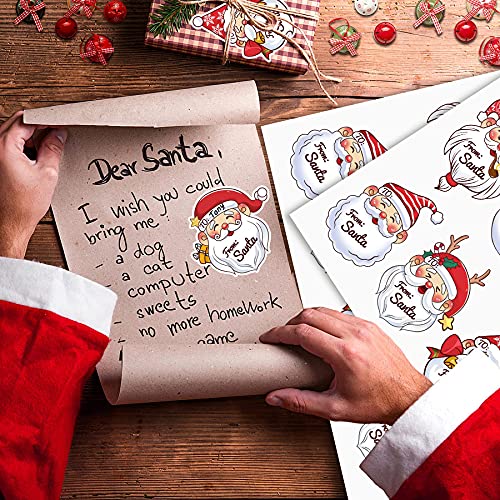 Dear Santa,
I wish you could
bring me:
- a dog
- a cat
- computer
- sweets
- no more homework
game
TO: Tom
From:
Santa
TO:
From:
Santa
TO:
From:
Santa
TO:
From:
Santa
From:
Santa
From:
Santa